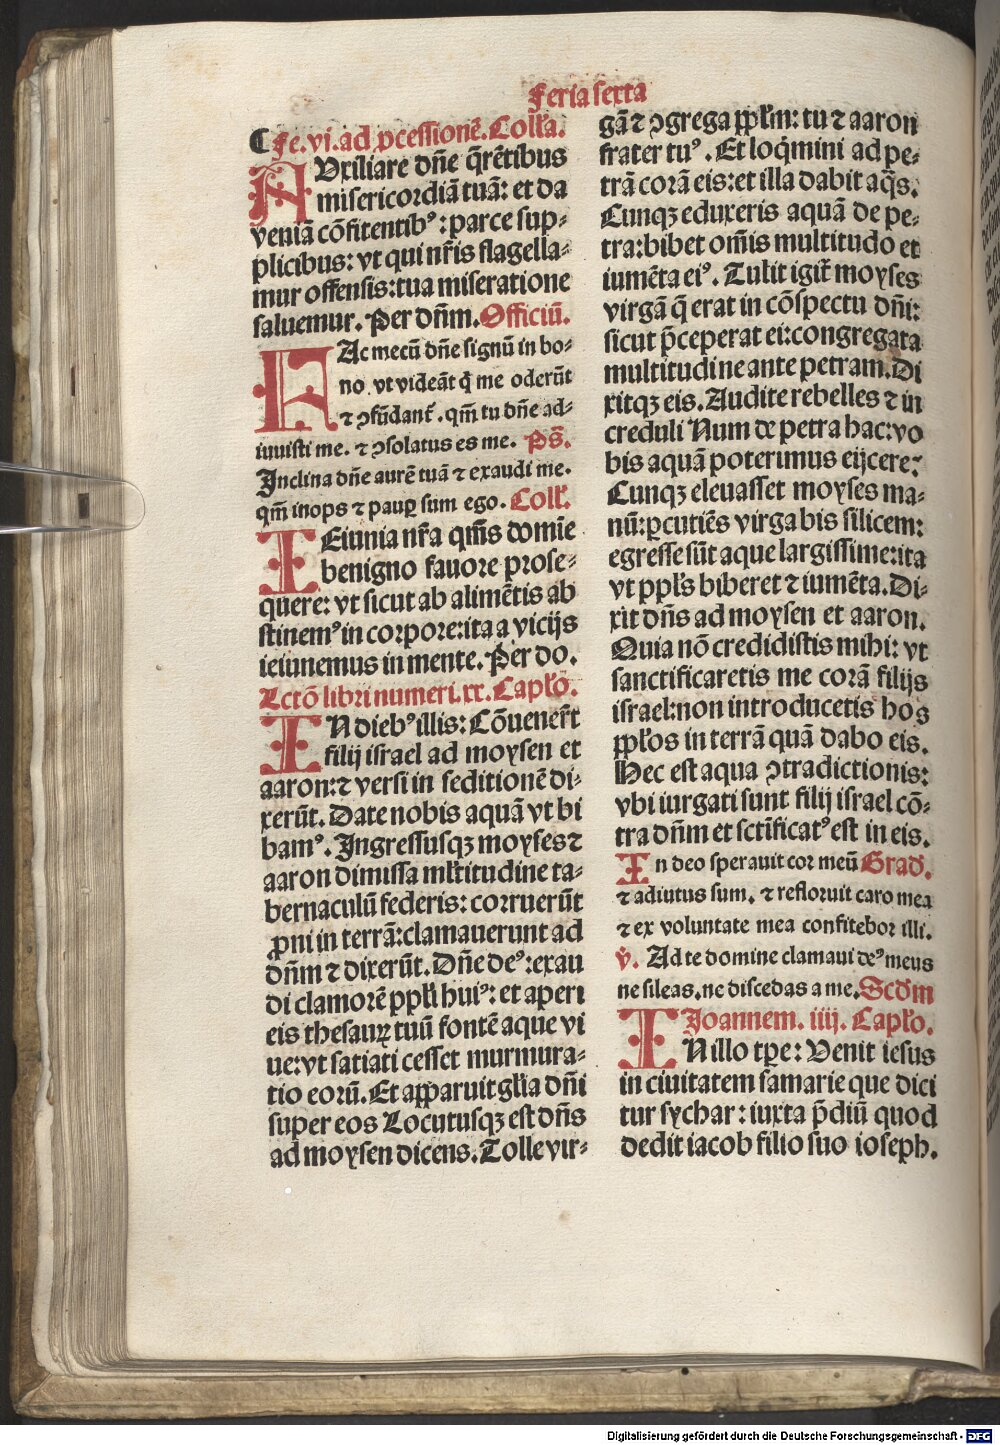 Feria sexta
¶ Fe. vi. ad ꝓcessionē. Coll'a.
AUxiliare dn̄e q̄rētibus
misericordiā tuā: et da
veniā cōfitentibꝰ: parce sup-
plicibus: vt qui nr̄is flagella-
mur offensis: tua miseratione
saluemur. Per dn̄m. Officiū.
FAc mecū dn̄e signū in bo-
no vt videāt q̇ me oderūt
⁊ ꝯfūdant̄. qm̄ tu dn̄e ad-
iuuisti me. ⁊ ꝯsolatus es me. Ps̄.
Inclina dn̄e aurē tuā ⁊ exaudi me.
qm̄ inops ⁊ pauꝑ sum ego. Coll'.
IEiunia nr̄a qm̄s domīe
benigno fauore prose-
quere: vt sicut ab alimētis ab
stinemꝰ in corpore: ita a vicijs
ieiunemus in mente. Per do.
Lctō libri numeri. xx. Capl'o.
IN diebꝰ illis: Cōuener̄t
filij israel ad moysen et
aaron: ⁊ versi in seditionē di-
xerūt. Date nobis aquā vt bi
bamꝰ. Ingressusqꝫ moyses ⁊
aaron dimissa ml'titudine ta-
bernaculū federis: corruerūt
ꝓni in terrā: clamauerunt ad
dn̄m ⁊ dixerūt. Dn̄e deꝰ: exau
di clamorē ppl'i huiꝰ: et aperi
eis thesauꝝ tuū fontē aque vi
ue: vt satiati cesset murmura-
tio eorū. Et apparuit gl'ia dn̄i
super eos Locutusqꝫ est dn̄s
ad moysen dicens. Tolle vir-
gā ⁊ ꝯgrega ppl'm: tu ⁊ aaron
frater tuꝰ. Et loq̇mini ad pe-
trā corā eis: et illa dabit aq̄s.
Cunqꝫ eduxeris aquā de pe-
tra: bibet om̄is multitudo et
iumēta eiꝰ. Tulit igit̄ moyses
virgā q̄ erat in cōspectu dn̄i:
sicut p̄ceperat ei: congregata
multitudine ante petram. Di
xitqꝫ eis. Audite rebelles ⁊ in
creduli Num de petra hac: vo
bis aquā poterimus eijcere?
Cunqꝫ eleuasset moyses ma-
nū: ꝑcutiēs virga bis silicem:
egresse sūt aque largissime: ita
vt ppl's biberet ⁊ iumēta. Di-
xit dn̄s ad moysen et aaron.
Quia nō credidistis mihi: vt
sanctificaretis me corā filijs
israel: non introducetis hos
ppl'os in terrā quā dabo eis.
Hec est aqua ꝯtradictionis:
vbi iurgati sunt filij israel cō-
tra dn̄m et sct̄ificatꝰ est in eis.
In deo sperauit cor meū Grad'.
⁊ adiutus sum. ⁊ refloruit caro mea
⁊ ex voluntate mea confitebor illi.
v̇. Ad te domine clamaui deꝰ meus
ne sileas. ne discedas a me. Scd'm
Joannem. iiij. Capl'o.
IN illo tp̄e: Venit iesus
in ciuitatem samarie que dici
tur sychar: iuxta p̄diū quod
dedit iacob filio suo ioseph.
Digitalisierung gefördert durch die Deutsche Forschungsgemeinschaft - DFG